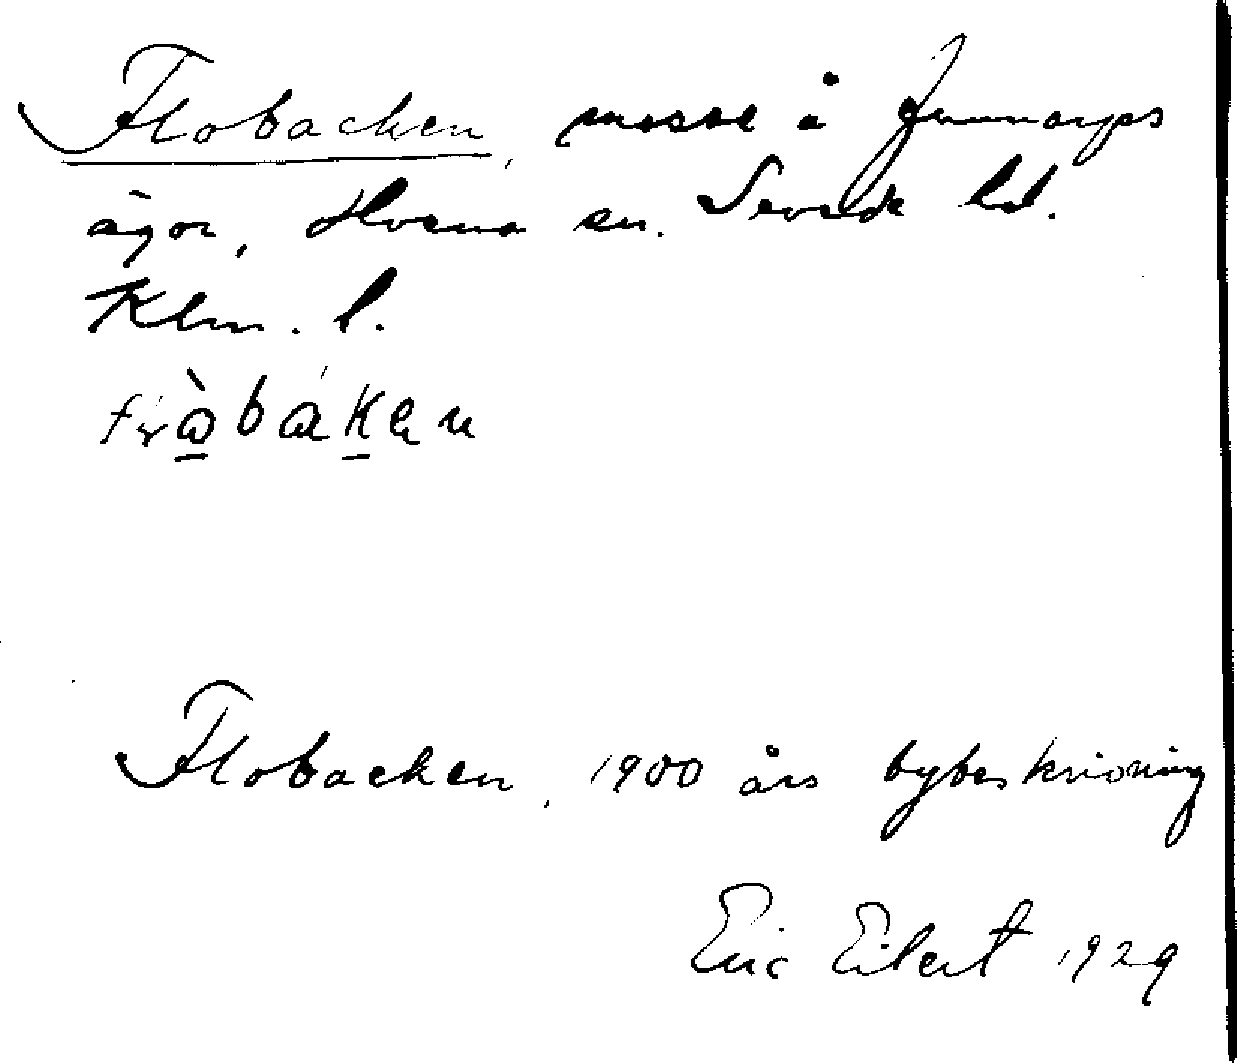 Flobacken, mosse å Gunnarps
ägor, Hvena sn. Sevede hd.
Klm. l.
Flobacken, 1900 års bybeskrivning
Eric Eilert 1929